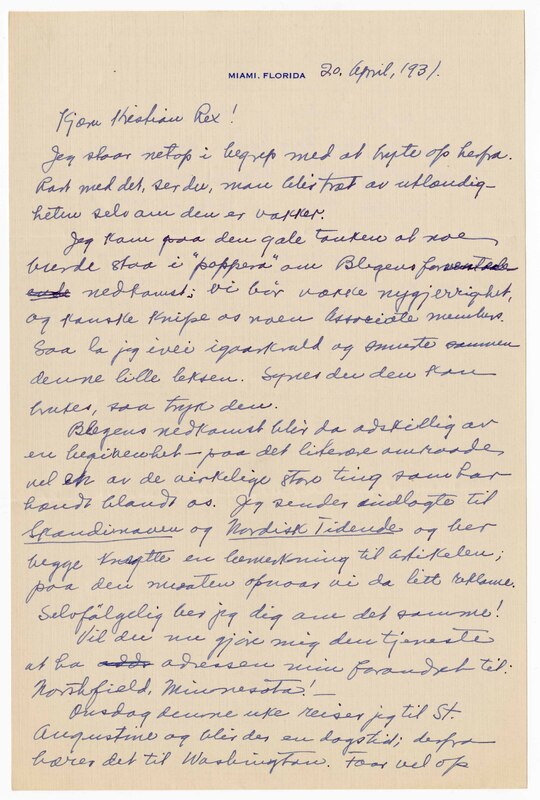 MIAMI, FLORIDA 20. April, 1931.
Kjære Kristian Prex!
Jeg staar netop i begrep med at bryte op herfra.
Rart med det, ser du, man blir træt av utlændig-
heten selv om den er vakker.
Jeg kom paa den gale tanken at noe
burde staa i "poppera" om Blegens forventede
nedkomst; vi bør vække nygjerrighet,
og kanske knipe os noen Associate members.
Saa la jeg ivei igaarkveld og smurte sammen
denne lille leksen. Synes du den kan
brukes, saa tryk den.
Blegens nedkomst blir da adskillig av
en begivenhet — paa det literære omraade
vel en av de virkelige store ting som har
hændt blandt os. Jeg sender indlagte til
Skandinaven og Nordisk Tidende og ber
begge knytte en bemerkning til artikelen;
paa den maaten opnaar vi da litt reklame.
Selvfølgelig ber jeg dig om det samme!
Vil du nu gjøre mig den tjeneste
at ha adressen min forandret til:
Northfield, Minnesota! —
Onsdag denne uke reiser jeg til St.
Augustine og blir der en dagstid; derfra
bærer det til Washington. Faar vel op